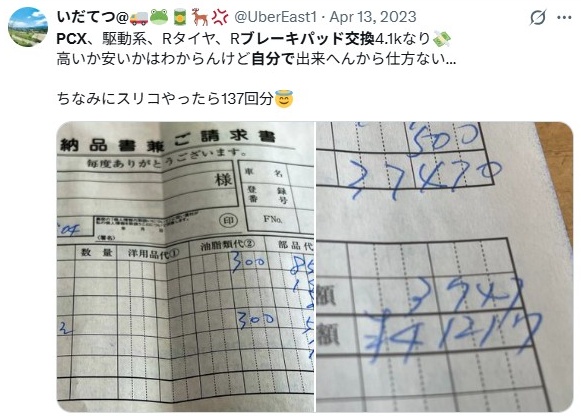 いだてつ@🚚🐸🥫🦌💢 @UberEast1 · Apr 13, 2023
PCX、駆動系、Rタイヤ、Rブレーキパッド交換4.1kなり💸
高いか安いかはわからんけど自分で出来へんから仕方ない...
ちなみにスリコやったら137回分😇
納品書兼ご請求書
毎度ありがとうございます。
様
車名
登録番号
FNo.
印
(署名)
数量 洋用品代① 油脂類代② 部品代
300
300
500
37470
額 3747
額 ¥41217